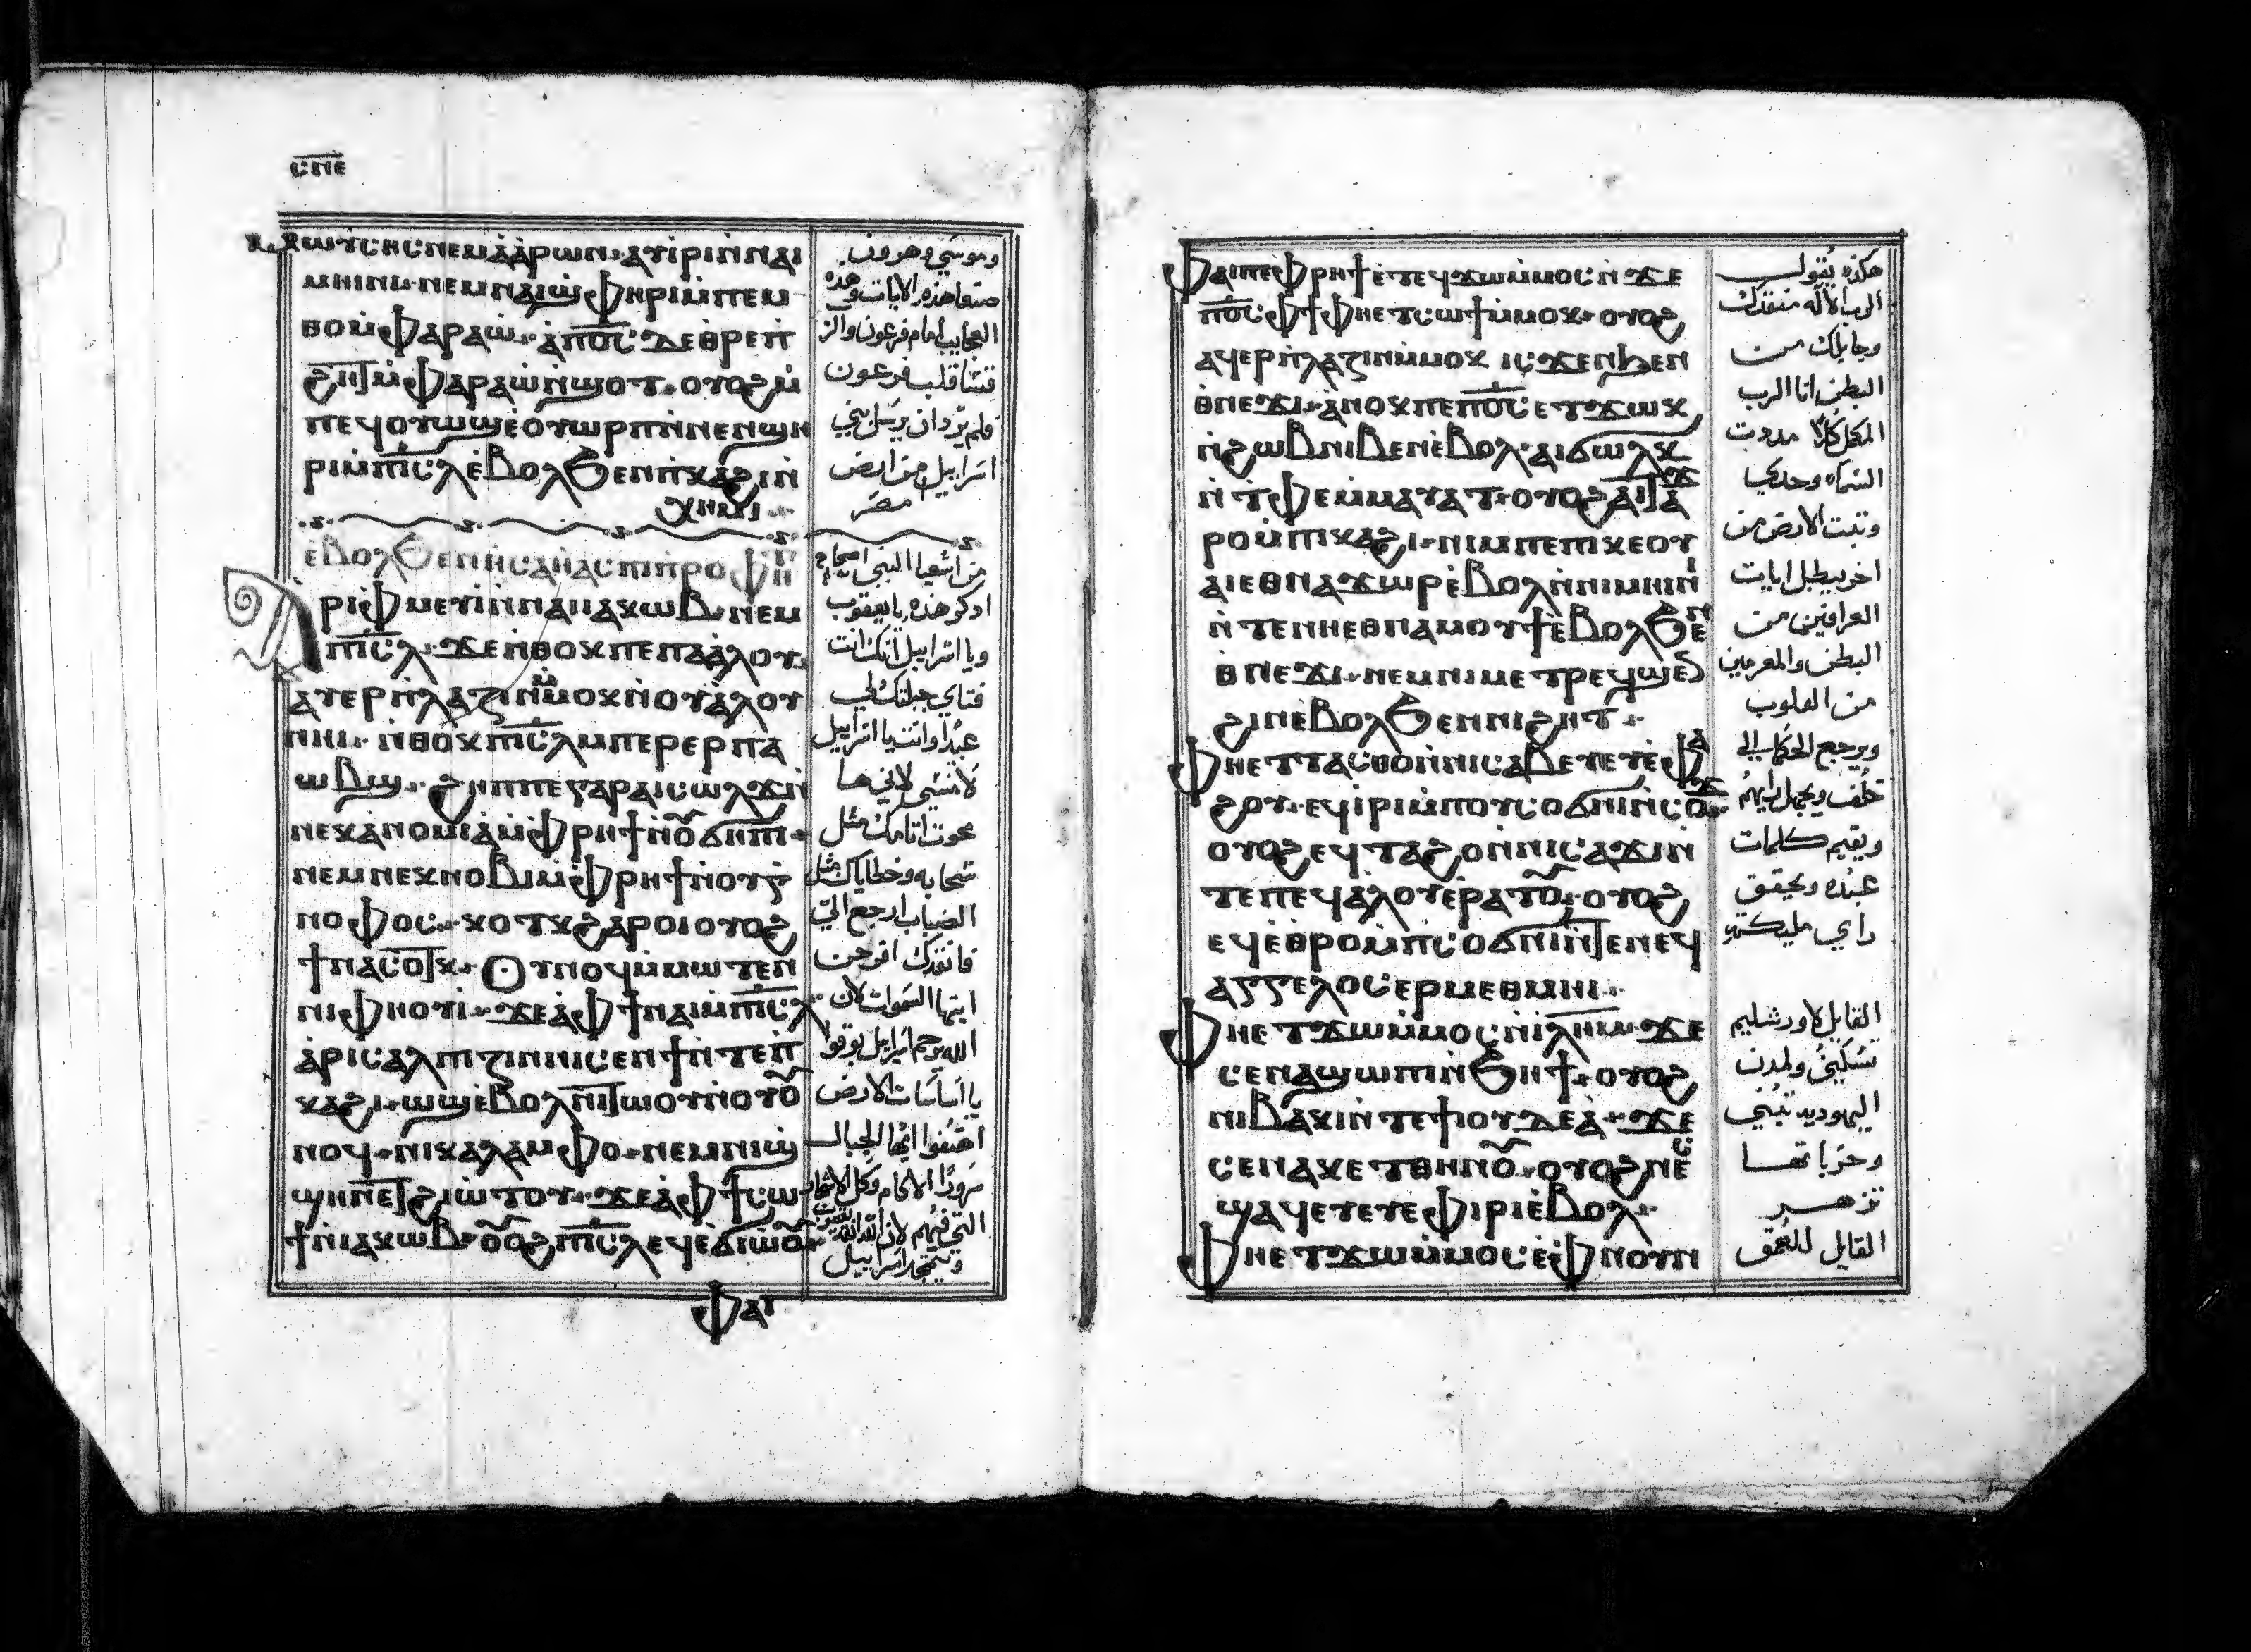 ⲥⲡⲉ
ⲙⲱⲩⲥⲏⲥ ⲛⲉⲙ ⲁ̀ⲁ̀ⲣⲱⲛ· ⲁⲩⲓ̀ⲣⲓ ⲛ̀ⲛⲁⲓ
ⲙⲏⲓⲛⲓ· ⲛⲉⲙ ⲛⲁⲓϣ̀ⲫⲏⲣⲓ ⲙ̀ⲡⲉⲙ
ⲑⲟ ⲙ̀ⲫⲁⲣⲁⲱ̀· ⲁ̀ⲡⲟ̅ⲥ̅ ⲇⲉ ⲑⲣⲉ ⲡ
ϩⲏⲧ ⲙ̀ⲫⲁⲣⲁⲱ̀ ⲛ̀ϣⲟⲧ· ⲟⲩⲟϩ ⲙ̀
ⲡⲉϥⲟⲩⲱϣ ⲉ̀ⲟⲩⲱⲣⲡ ⲛ̀ⲛⲉⲛϣⲏ
ⲣⲓ ⲙ̀ⲡⲓ̅ⲥ̅ⲗ̅ ⲉ̀ⲃⲟⲗ ϧⲉⲛ ⲡ̀ⲕⲁϩⲓ ⲛ̀
ⲭⲏⲙⲓ
ⲉ̀ⲃⲟⲗ ϧⲉⲛ ⲏⲥⲁⲏⲁⲥ ⲡⲓⲡ̀ⲣⲟⲫⲏ
ⲁⲣⲓⲫ̀ⲙⲉⲩⲓ̀ ⲛ̀ⲛⲁⲓ ⲓⲁⲕⲱⲃ· ⲛⲉⲙ
ⲡⲓ̅ⲥ̅ⲗ̅· ϫⲉ ⲛ̀ⲑⲟⲕ ⲡⲉ ⲡⲁⲁ̀ⲗⲟⲩ
ⲁⲩⲉⲣⲡ̀ⲗⲁⲍⲓⲛ ⲙ̀ⲙⲟⲕ ⲛ̀ⲟⲩⲁ̀ⲗⲟⲩ
ⲛⲏⲓ· ⲛ̀ⲑⲟⲕ ⲡⲓ̅ⲥ̅ⲗ̅ ⲙⲡⲉⲣⲉⲣⲡⲁ
ⲱⲃϣ· ϩⲏⲡⲡⲉ ⲅⲁⲣ ⲁⲓⲥⲱⲗϫ ⲛ̀
ⲛⲉⲕⲁⲛⲟⲙⲓⲁ̀ ⲙ̀ⲫ̀ⲣⲏϯ ⲛ̀ⲟ̅ϭⲏⲡⲓ·
ⲛⲉⲙ ⲛⲉⲕⲛⲟⲃⲓ ⲙ̀ⲫ̀ⲣⲏϯ ⲛ̀ⲟⲩⲅ
ⲛⲟⲫⲟⲥ· ⲕⲟⲧⲕ ϩⲁⲣⲟⲓ ⲟⲩⲟϩ
ϯⲛⲁⲥⲟⲧⲕ· Ⲟⲩⲛⲟϥ ⲙ̀ⲙⲱⲧⲉⲛ
ⲛⲓⲫⲏⲟⲩⲓ̀· ϫⲉ ⲁ̀ ⲫϯ ⲛⲁⲓ ⲙ̀ⲡⲓ̅ⲥ̅ⲗ̅
ⲁ̀ⲣⲓⲥⲁⲗⲡⲓⲍⲓⲛ ⲛⲓⲥⲉⲛϯ ⲛ̀ⲧⲉ ⲡ̀
ⲕⲁϩⲓ· ⲱϣ ⲉ̀ⲃⲟⲗ ⲛⲓⲧⲱⲟⲩ ⲛ̀ⲟⲩⲟ̅
ⲛⲟϥ· ⲛⲓⲕⲁⲗⲁⲙⲫⲟ· ⲛⲉⲙ ⲛⲓϣ̀
ϣⲏⲛ ⲉⲧϩⲓⲱ̀ⲧⲟⲩ· ϫⲉ ⲁ̀ⲫϯ ⲥⲱ
ϯ ⲛ̀ⲓⲁⲕⲱⲃ· ⲟ̅ⲟϩ ⲡⲓ̅ⲥ̅ⲗ̅ ⲉϥⲉ̀ϭⲓⲱ̀ⲟ̅
ⲫⲁⲓ
وموسي وهرون
صنعا هذه الايات وهذه
العجايب امام فرعون والرب
قسّا قلب فرعون
فلم يرد ان يرسل بني
اسراييل من ارض
مصر
من اشعيا النبي اصحاح
اذكر هذه يا يعقوب
ويا اسراييل انك انت
فتاي جبلتك لي
عبدا وانت يا اسراييل
لا تنسي لاني ها
محوت اثامك مثل
سحابه وخطاياك مثل
الضباب ارجع الي
فانقذك افرحن
ايتها السموات لان
الله يرحم اسراييل بوقوا
يا اساسات الارض
اهتفوا ايها الجبال
سرورًا الاكام وكل الاشجار
التي فيهم لان الله انقذ يعقوب
ويتمجد اسراييل
ⲫⲁⲓ ⲡⲉ ⲙ̀ⲫ̀ⲣⲏϯ ⲉ̀ⲧⲉϥϫⲱ ⲙ̀ⲙⲟⲥ ⲛ̀ϫⲉ
ⲡⲟ̅ⲥ̅ ⲫϯ ⲫⲏⲉⲧⲥⲱϯ ⲙ̀ⲙⲟⲕ· ⲟⲩⲟϩ
ⲁϥⲉⲣⲡ̀ⲗⲁⲍⲓⲛ ⲙ̀ⲙⲟⲕ ⲓⲥϫⲉⲛ ϧⲉⲛ
ⲑⲛⲉϫⲓ· ⲁ̀ⲛⲟⲕ ⲡⲉ ⲡⲟ̅ⲥ̅ ⲉⲧϫⲱⲕ
ⲛ̀ϩⲱⲃ ⲛⲓⲃⲉⲛ ⲉ̀ⲃⲟⲗ· ⲁⲓϭⲱⲗⲕ
ⲛ̀ⲧ̀ⲫⲉ ⲙ̀ⲙⲁⲩⲁⲧ· ⲟⲩⲟϩ ⲁⲓⲧⲁϫ
ⲣⲟ ⲙ̀ⲡⲓⲕⲁϩⲓ· ⲛⲓⲙ ⲡⲉ ⲡⲓⲕⲉⲟⲩ
ⲁⲓ ⲉⲑⲛⲁϫⲱⲣ ⲉ̀ⲃⲟⲗ ⲛ̀ⲛⲓⲙⲏⲓⲛⲓ
ⲛ̀ⲧⲉ ⲛⲏⲉⲑⲛⲁⲙⲟⲩϯ ⲉ̀ⲃⲟⲗ ϧⲉⲛ
ⲑⲛⲉϫⲓ· ⲛⲉⲙ ⲛⲓⲙⲉⲧⲣⲉϥϣⲉ
ϩⲓⲛ ⲉ̀ⲃⲟⲗ ϧⲉⲛ ⲛⲓϩⲏⲧ
ⲫⲏⲉⲧⲧⲁⲥⲑⲟ ⲛ̀ⲛⲓⲥⲁⲃⲉⲩ ⲉ̀ⲫⲁ
ϩⲟⲩ· ⲉϥⲓ̀ⲣⲓ ⲙ̀ⲡⲟⲩⲥⲟϭⲛⲓ ⲛ̀ⲥⲟϫ
ⲟⲩⲟϩ ⲉϥⲧⲁϩⲟ ⲛ̀ⲛⲓⲥⲁϫⲓ ⲛ̀
ⲧⲉ ⲡⲉϥⲁⲗⲟⲩ ⲉ̀ⲣⲁⲧⲟ̅· ⲟⲩⲟϩ
ⲉϥⲉ̀ⲑⲣⲟ ⲙ̀ⲡⲥⲟϭⲛⲓ ⲛ̀ⲧⲉ ⲛⲉϥ
ⲁⲅⲅⲉⲗⲟⲥ ⲉⲣⲙⲉⲑⲙⲏⲓ
ⲫⲏⲉⲧϫⲱ ⲙ̀ⲙⲟⲥ ⲛ̀ⲓ̅ⲗ̅ⲏ̅ⲙ̅· ϫⲉ
ⲥⲉⲛⲁϣⲱⲡⲓ ⲛ̀ϧⲏϯ· ⲟⲩⲟϩ
ⲛⲓⲃⲁⲕⲓ ⲛ̀ⲧⲉ ϯⲟⲩⲇⲉⲁ̀· ϫⲉ
ⲥⲉⲛⲁⲕⲉⲧⲑⲏⲛⲟ̅· ⲟⲩⲟϩ ⲛⲉⲥ
ϣⲁϥⲉⲩ ⲉⲩⲉ̀ⲫⲓⲣⲓ ⲉ̀ⲃⲟⲗ
ⲫⲏⲉⲧϫⲱ ⲙ̀ⲙⲟⲥ ⲉ̀ⲫ̀ⲛⲟⲩⲛ
هكذه يقول
الرب الاله منقذك
وجابلك من
البطن انا الرب
المكمل كلًا مددت
السماء وحدي
وثبت الارض من
اخر يبطل ايات
العرافين من
البطن والمعزمين
من القلوب
ويرجع الحكما الي
خلف ويجهل رايهم
ويقيم كلمات
عبده ويحقق
راي مليكته
القايل لاورشليم
تسكني ولمدن
اليهوديه تبني
وخراباتها
تزهر
القايل للعمق